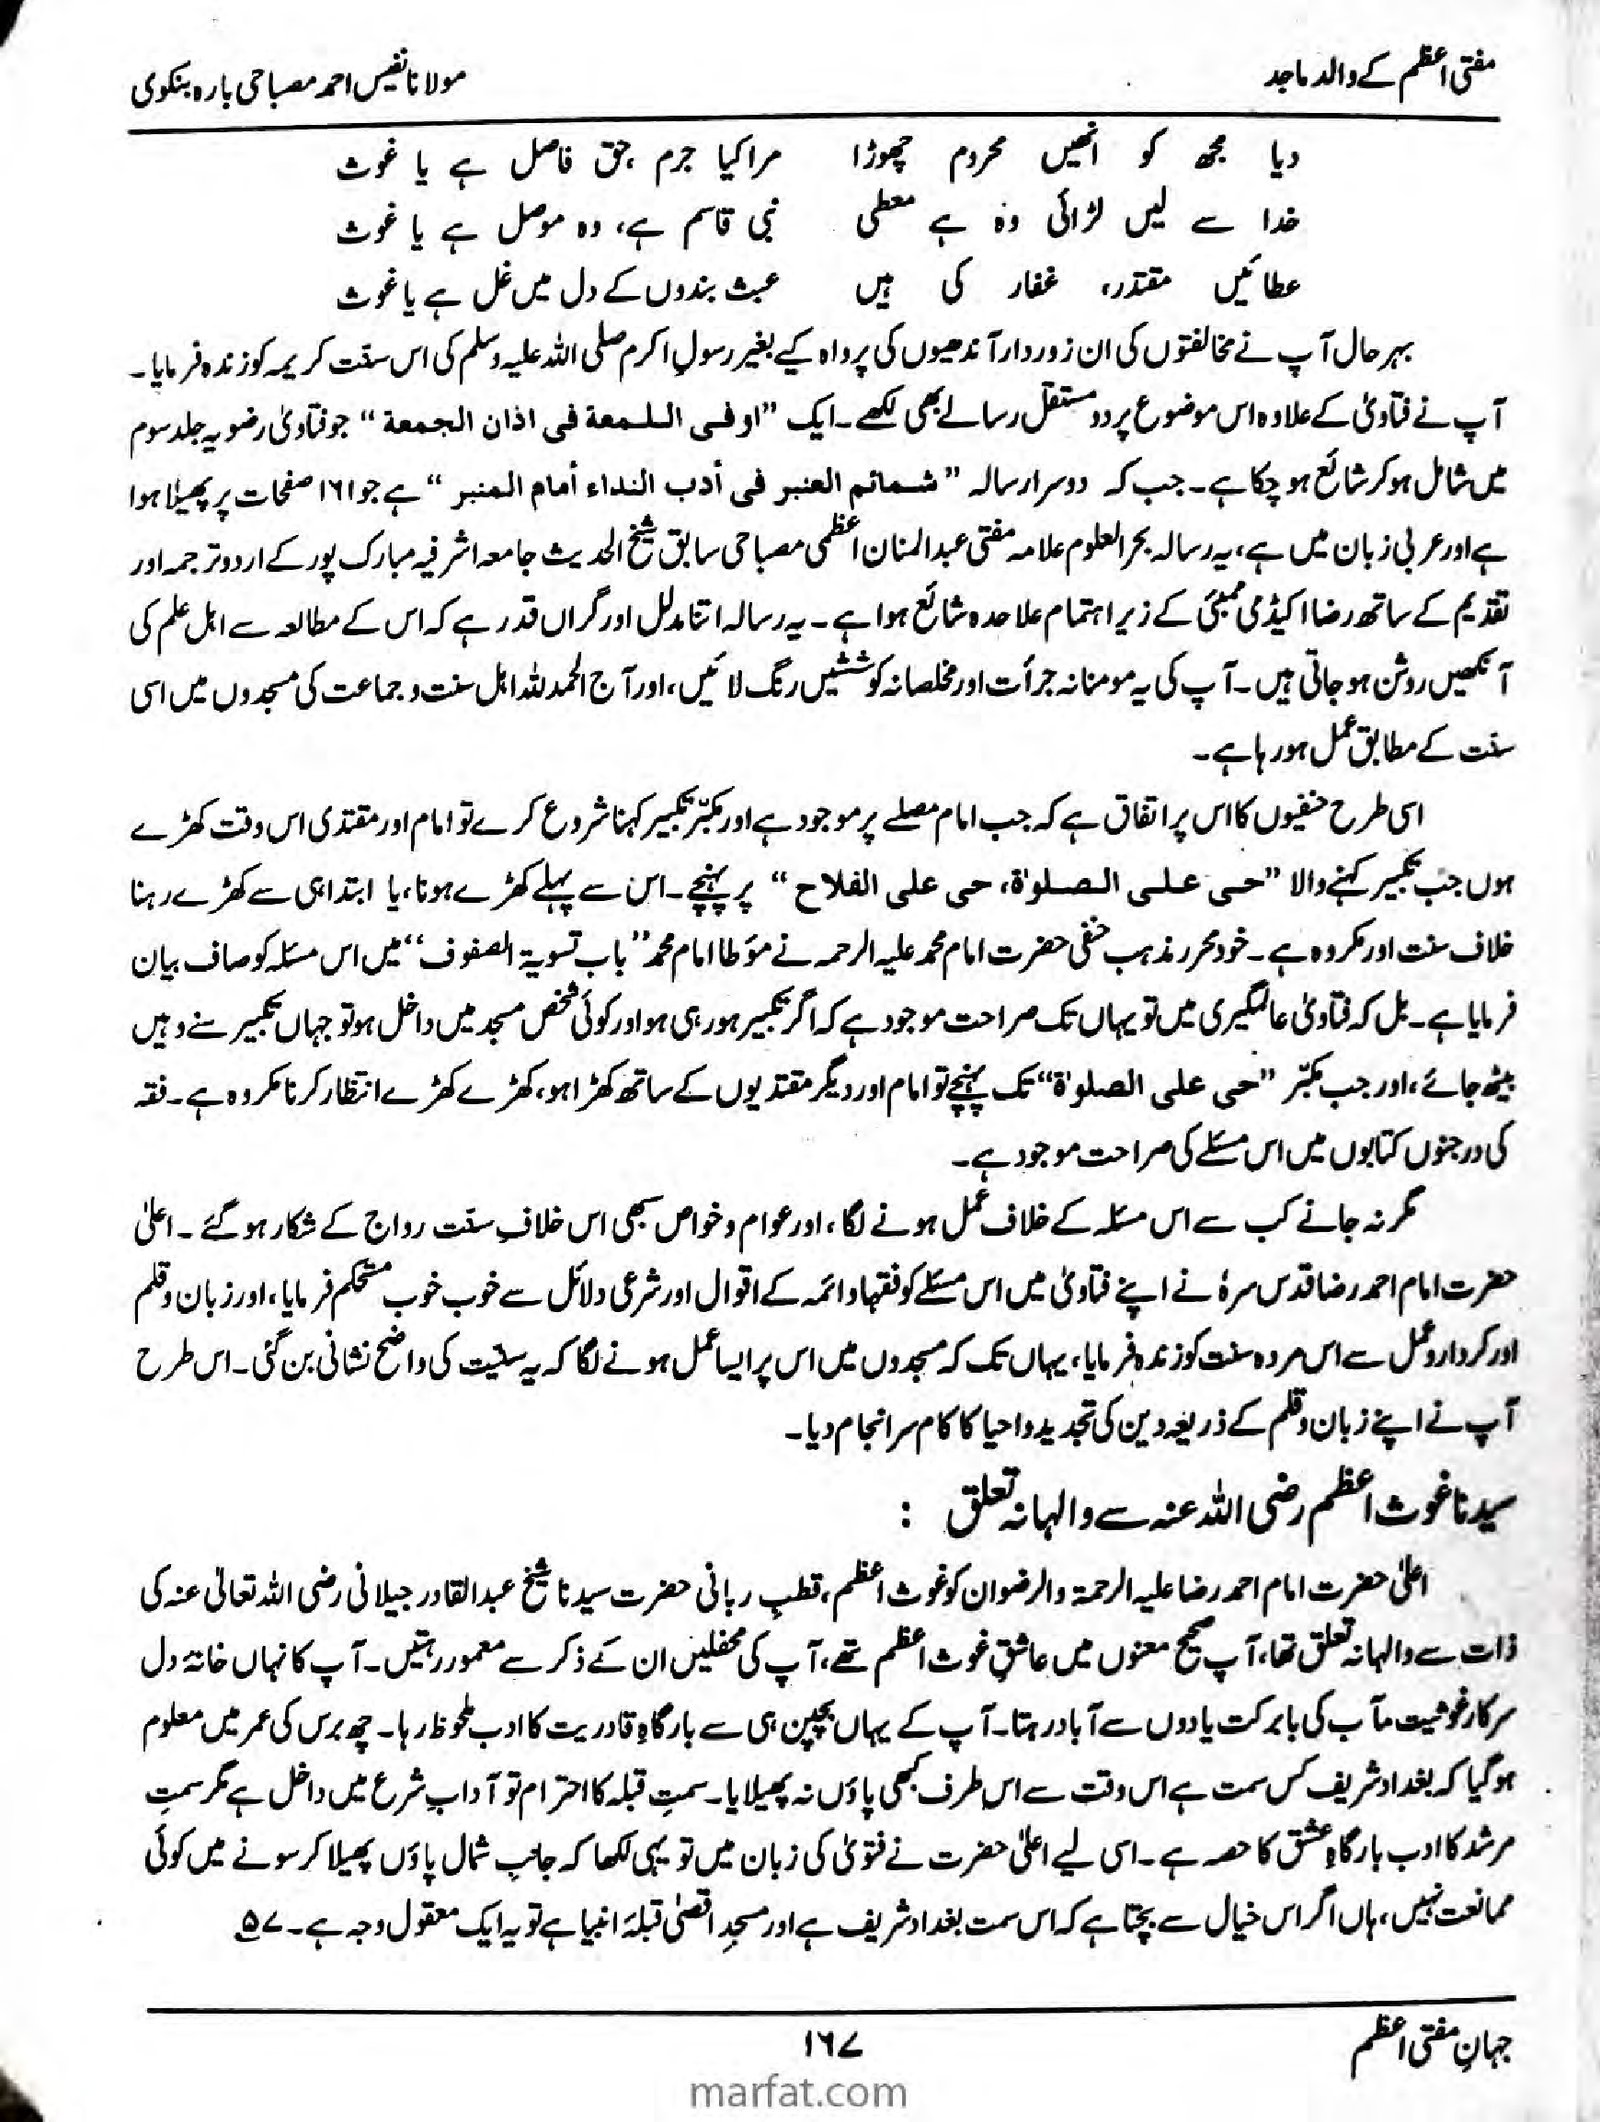 مفتی اعظم کے والد ماجد
مولانا نفیس احمد مصباحی بارہ بنکوی
دیا مجھ کو انھیں محروم چھوڑا مرا کیا جرم ، حق فاصل ہے یا غوث
خدا سے لیں لڑائی وہ ہے معطی نبی قاسم ہے، وہ موصل ہے یا غوث
عطائیں مقتدر، غفار کی ہیں عبث بندوں کے دل میں غل ہے یا غوث
بہر حال آپ نے مخالفتوں کی ان زوردار آندھیوں کی پرواہ کیے بغیر رسولِ اکرم صلی اللہ علیہ وسلم کی اس سنّت کریمہ کو زندہ فرمایا۔
آپ نے فتاویٰ کے علاوہ اس موضوع پر دو مستقل رسالے بھی لکھے۔ ایک ”اوفی اللمعة فی اذان الجمعة“ جو فتاویٰ رضویہ جلد سوم
میں شامل ہو کر شائع ہو چکا ہے۔ جب کہ دوسرا رسالہ ”شمائم العنبر فی أدب النداء أمام المنبر“ ہے جو ۱۶۱ صفحات پر پھیلا ہوا
ہے اور عربی زبان میں ہے، یہ رسالہ بحر العلوم علامہ مفتی عبد المنان اعظمی مصباحی سابق شیخ الحدیث جامعہ اشرفیہ مبارک پور کے اردو ترجمہ اور
تقدیم کے ساتھ رضا اکیڈمی ممبئی کے زیر اہتمام علاحدہ شائع ہوا ہے۔ یہ رسالہ اتنا مدلل اور گراں قدر ہے کہ اس کے مطالعہ سے اہل علم کی
آنکھیں روشن ہو جاتی ہیں۔ آپ کی یہ مومنانہ جرأت اور مخلصانہ کوششیں رنگ لائیں، اور آج الحمد للہ اہل سنت و جماعت کی مسجدوں میں اسی
سنّت کے مطابق عمل ہو رہا ہے۔
اسی طرح حنفیوں کا اس پر اتفاق ہے کہ جب امام مصلے پر موجود ہے اور مکبّر تکبیر کہنا شروع کرے تو امام اور مقتدی اس وقت کھڑے
ہوں جب تکبیر کہنے والا ”حی علی الصلوٰة، حی علی الفلاح“ پر پہنچے۔ اس سے پہلے کھڑے ہونا، یا ابتدا ہی سے کھڑے رہنا
خلاف سنت اور مکروہ ہے۔ خود محرر مذہب حنفی حضرت امام محمد علیہ الرحمہ نے مؤطا امام محمد ”باب تسویة الصفوف“ میں اس مسئلہ کو صاف بیان
فرمایا ہے۔ بل کہ فتاویٰ عالمگیری میں تو یہاں تک صراحت موجود ہے کہ اگر تکبیر ہو رہی ہو اور کوئی شخص مسجد میں داخل ہو تو جہاں تکبیر سنے وہیں
بیٹھ جائے، اور جب مکبّر ”حی علی الصلوٰة“ تک پہنچے تو امام اور دیگر مقتدیوں کے ساتھ کھڑا ہو، کھڑے کھڑے انتظار کرنا مکروہ ہے۔ فقہ
کی درجنوں کتابوں میں اس مسئلے کی صراحت موجود ہے۔
مگر نہ جانے کب سے اس مسئلہ کے خلاف عمل ہونے لگا، اور عوام و خواص سبھی اس خلافِ سنّت رواج کے شکار ہو گئے۔ اعلیٰ
حضرت امام احمد رضا قدس سرہٗ نے اپنے فتاویٰ میں اس مسئلے کو فقہا و ائمہ کے اقوال اور شرعی دلائل سے خوب خوب مستحکم فرمایا، اور زبان و قلم
اور کردار و عمل سے اس مردہ سنت کو زندہ فرمایا، یہاں تک کہ مسجدوں میں اس پر ایسا عمل ہونے لگا کہ یہ سنّیت کی واضح نشانی بن گئی۔ اس طرح
آپ نے اپنے زبان و قلم کے ذریعہ دین کی تجدید و احیا کا کام سر انجام دیا۔
سیدنا غوث اعظم رضی اللہ عنہ سے والہانہ تعلق :
اعلیٰ حضرت امام احمد رضا علیہ الرحمۃ والرضوان کو غوث اعظم، قطبِ ربانی حضرت سیدنا شیخ عبد القادر جیلانی رضی اللہ تعالیٰ عنہ کی
ذات سے والہانہ تعلق تھا، آپ صحیح معنوں میں عاشقِ غوث اعظم تھے، آپ کی محفلیں ان کے ذکر سے معمور رہتیں۔ آپ کا نہاں خانۂ دل
سرکار غوثیت مآب کی بابرکت یادوں سے آباد رہتا۔ آپ کے یہاں بچپن ہی سے بارگاہِ قادریت کا ادب ملحوظ رہا۔ چھ برس کی عمر میں معلوم
ہو گیا کہ بغداد شریف کس سمت ہے اس وقت سے اس طرف کبھی پاؤں نہ پھیلایا۔ سمتِ قبلہ کا احترام تو آدابِ شرع میں داخل ہے مگر سمتِ
مرشد کا ادب بارگاہِ عشق کا حصہ ہے۔ اسی لیے اعلیٰ حضرت نے فتویٰ کی زبان میں تو یہی لکھا کہ جانبِ شمال پاؤں پھیلا کر سونے میں کوئی
ممانعت نہیں، ہاں اگر اس خیال سے بچتا ہے کہ اس سمت بغداد شریف ہے اور مسجدِ اقصیٰ قبلۂ انبیا ہے تو یہ ایک معقول وجہ ہے۔ ۵۷
جہانِ مفتی اعظم
۱۶۷
marfat.com